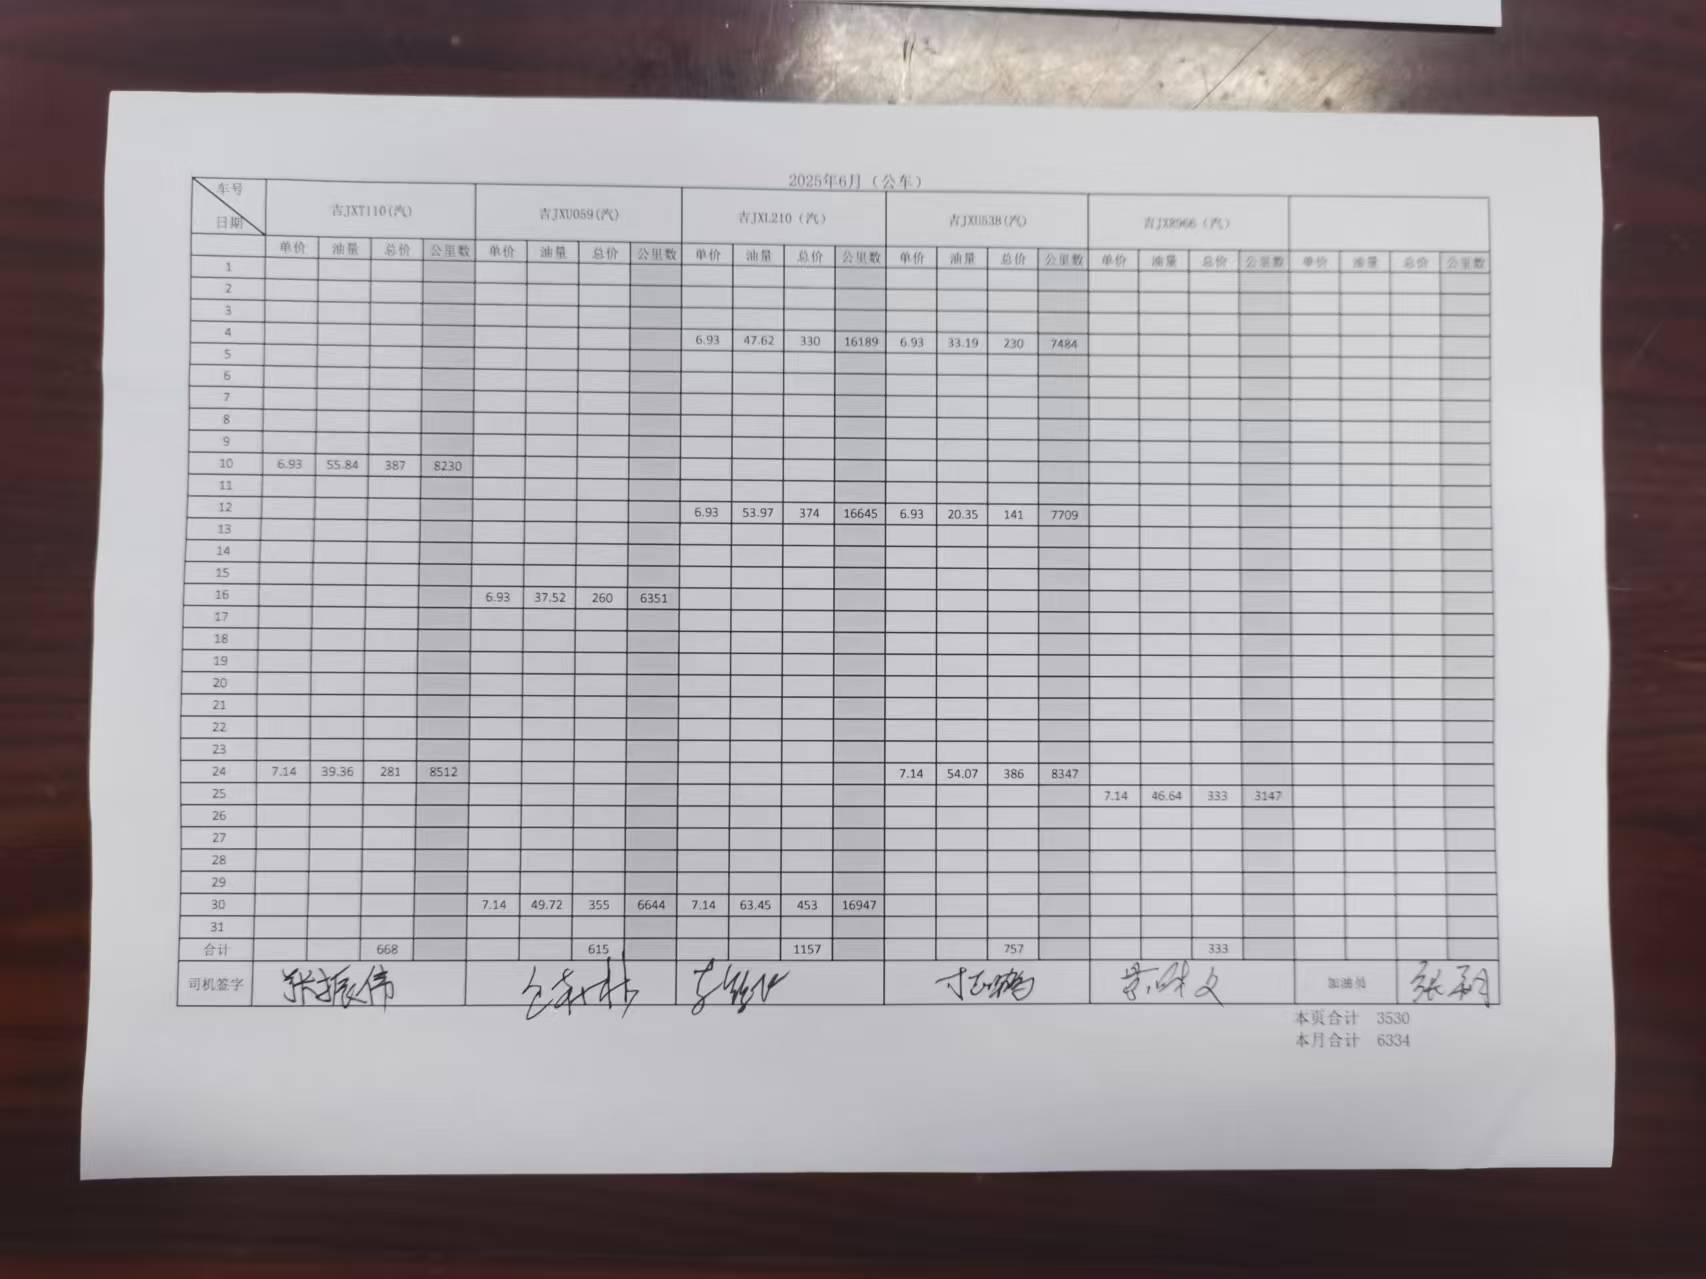 2025年6月（公车）
车号 吉JXT110(汽) 吉JXU059(汽) 吉JXL210（汽） 吉JXU538(汽) 吉JXR966（汽）
日期
单价 油量 总价 公里数 单价 油量 总价 公里数 单价 油量 总价 公里数 单价 油量 总价 公里数 单价 油量 总价 公里数 单价 油量 总价 公里数
1
2
3
4 6.93 47.62 330 16189 6.93 33.19 230 7484
5
6
7
8
9
10 6.93 55.84 387 8230
11
12 6.93 53.97 374 16645 6.93 20.35 141 7709
13
14
15
16 6.93 37.52 260 6351
17
18
19
20
21
22
23
24 7.14 39.36 281 8512 7.14 54.07 386 8347
25 7.14 46.64 333 3147
26
27
28
29
30 7.14 49.72 355 6644 7.14 63.45 453 16947
31
合计 668 615 1157 757 333
司机签字 张振伟 加油员
本页合计 3530
本月合计 6334